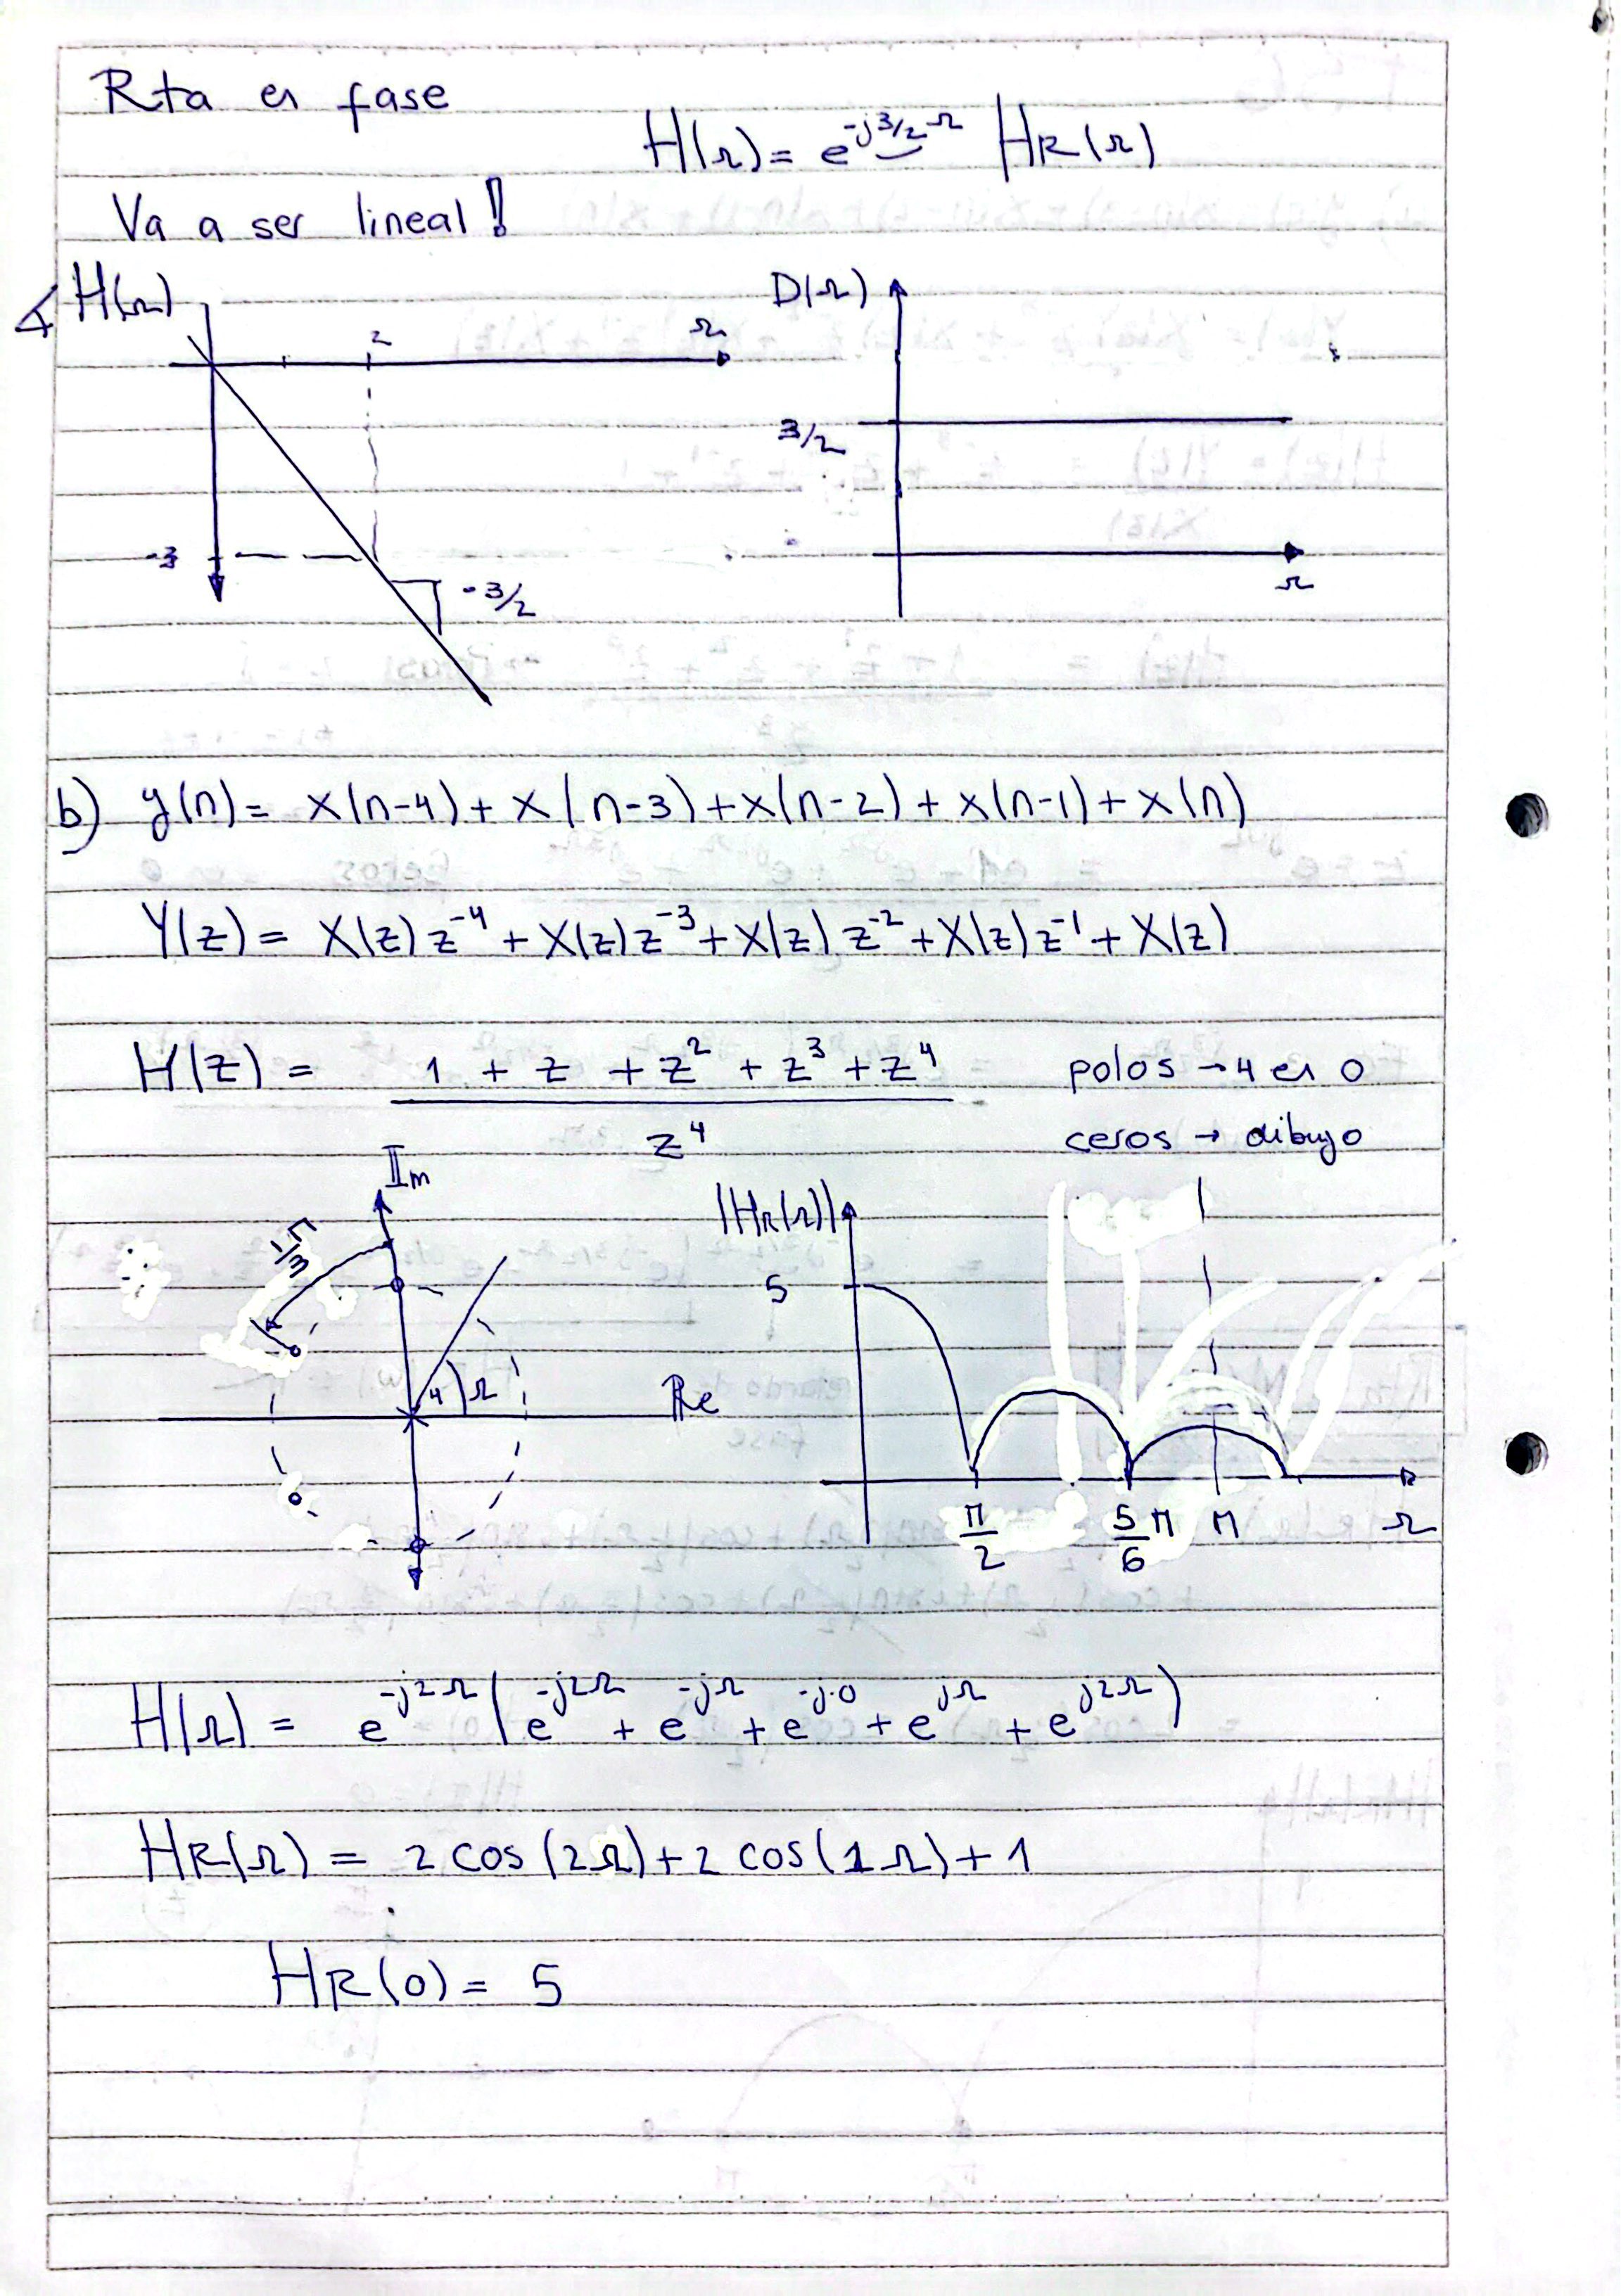 Rta en fase
H(Ω) = e^{-j3/2 Ω} HR(Ω)
Va a ser lineal!
∡ H(Ω)
2
Ω
-3
-3/2
D(Ω)
3/2
Ω
b) y(n) = x(n-4) + x(n-3) + x(n-2) + x(n-1) + x(n)
Y(z) = X(z) z^{-4} + X(z) z^{-3} + X(z) z^{-2} + X(z) z^{-1} + X(z)
H(z) = (1 + z + z^2 + z^3 + z^4) / z^4
polos → 4 en 0
ceros → dibujo
Im
1/3 π
4
Ω
Re
|HR(Ω)|
5
π/2
5/6 π
π
Ω
H(Ω) = e^{-j2Ω} ( e^{-j2Ω} + e^{-jΩ} + e^{-j·0} + e^{jΩ} + e^{j2Ω} )
HR(Ω) = 2 cos(2Ω) + 2 cos(1Ω) + 1
HR(0) = 5